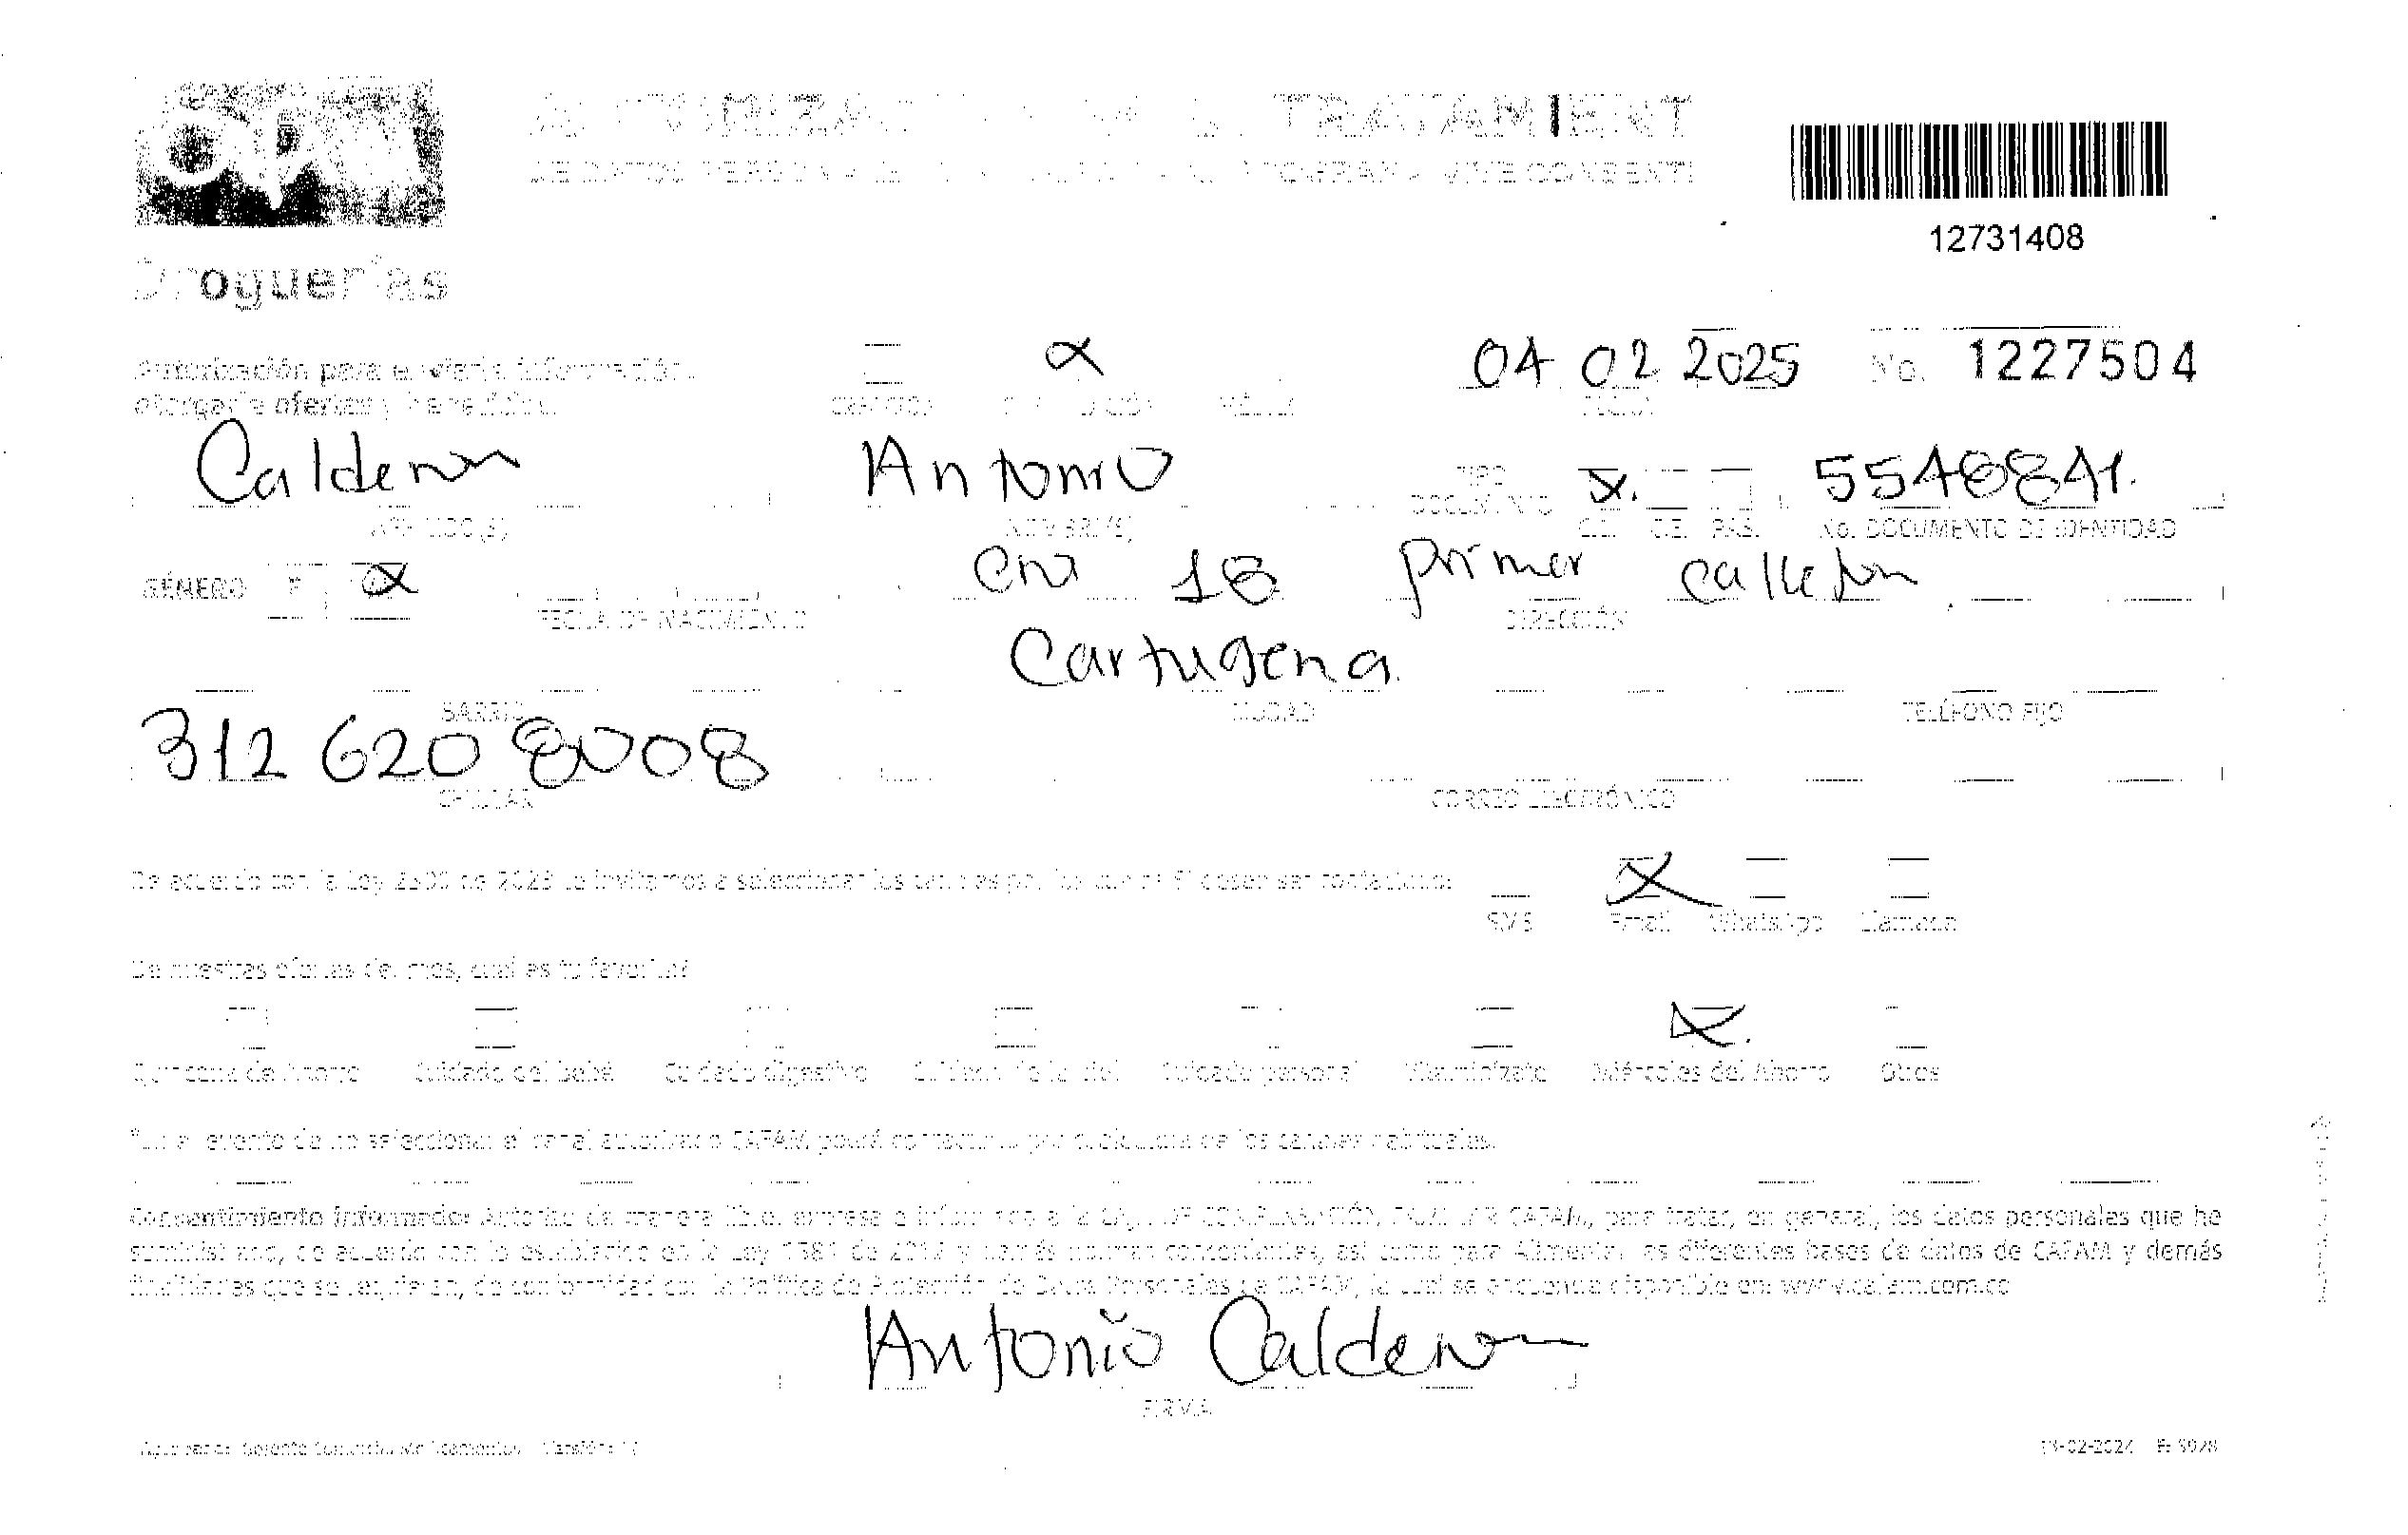 12731408
Droguerías
Autorización para enviarle información,
otorgarle ofertas y beneficios.
04 02 2025
No. 1227504
Calderon
Antonio
TIPO
DOCUMENTO
5540841.
APELLIDO(S)
NOMBRE(S)
C.C. C.E. PAS.
No. DOCUMENTO DE IDENTIDAD
GÉNERO F
cra 18 primer callejon
FECHA DE NACIMIENTO
DIRECCIÓN
Cartagena.
BARRIO
CIUDAD
TELÉFONO FIJO
312 620 8008
CELULAR
CORREO ELECTRÓNICO
De acuerdo con la Ley 2300 de 2023 le invitamos a seleccionar los canales por los que
SMS Email WhatsApp Llamada
De nuestras ofertas del mes, cuál es tu favorita?
Quincena del Ahorro Cuidado del bebé Cuidado digestivo Cuidado de la piel Cuidado personal Vitamínizate Miércoles del Ahorro Otros
*En el evento de no seleccionar el canal autorizado CAFAM podrá contactarlo por cualquiera de los canales habituales.
Consentimiento Informado: Autorizo de manera libre, expresa e informada a la CAJA DE COMPENSACIÓN FAMILIAR CAFAM, para tratar, en general, los datos personales que he
suministrado, de acuerdo con lo establecido en la Ley 1581 de 2012 y demás normas concordantes, así como para Alimentar las diferentes bases de datos de CAFAM y demás
finalidades que se requieran, de conformidad con la Política de Protección de Datos Personales de CAFAM, la cual se encuentra disponible en: www.cafam.com.co
Antonio Calderon
FIRMA